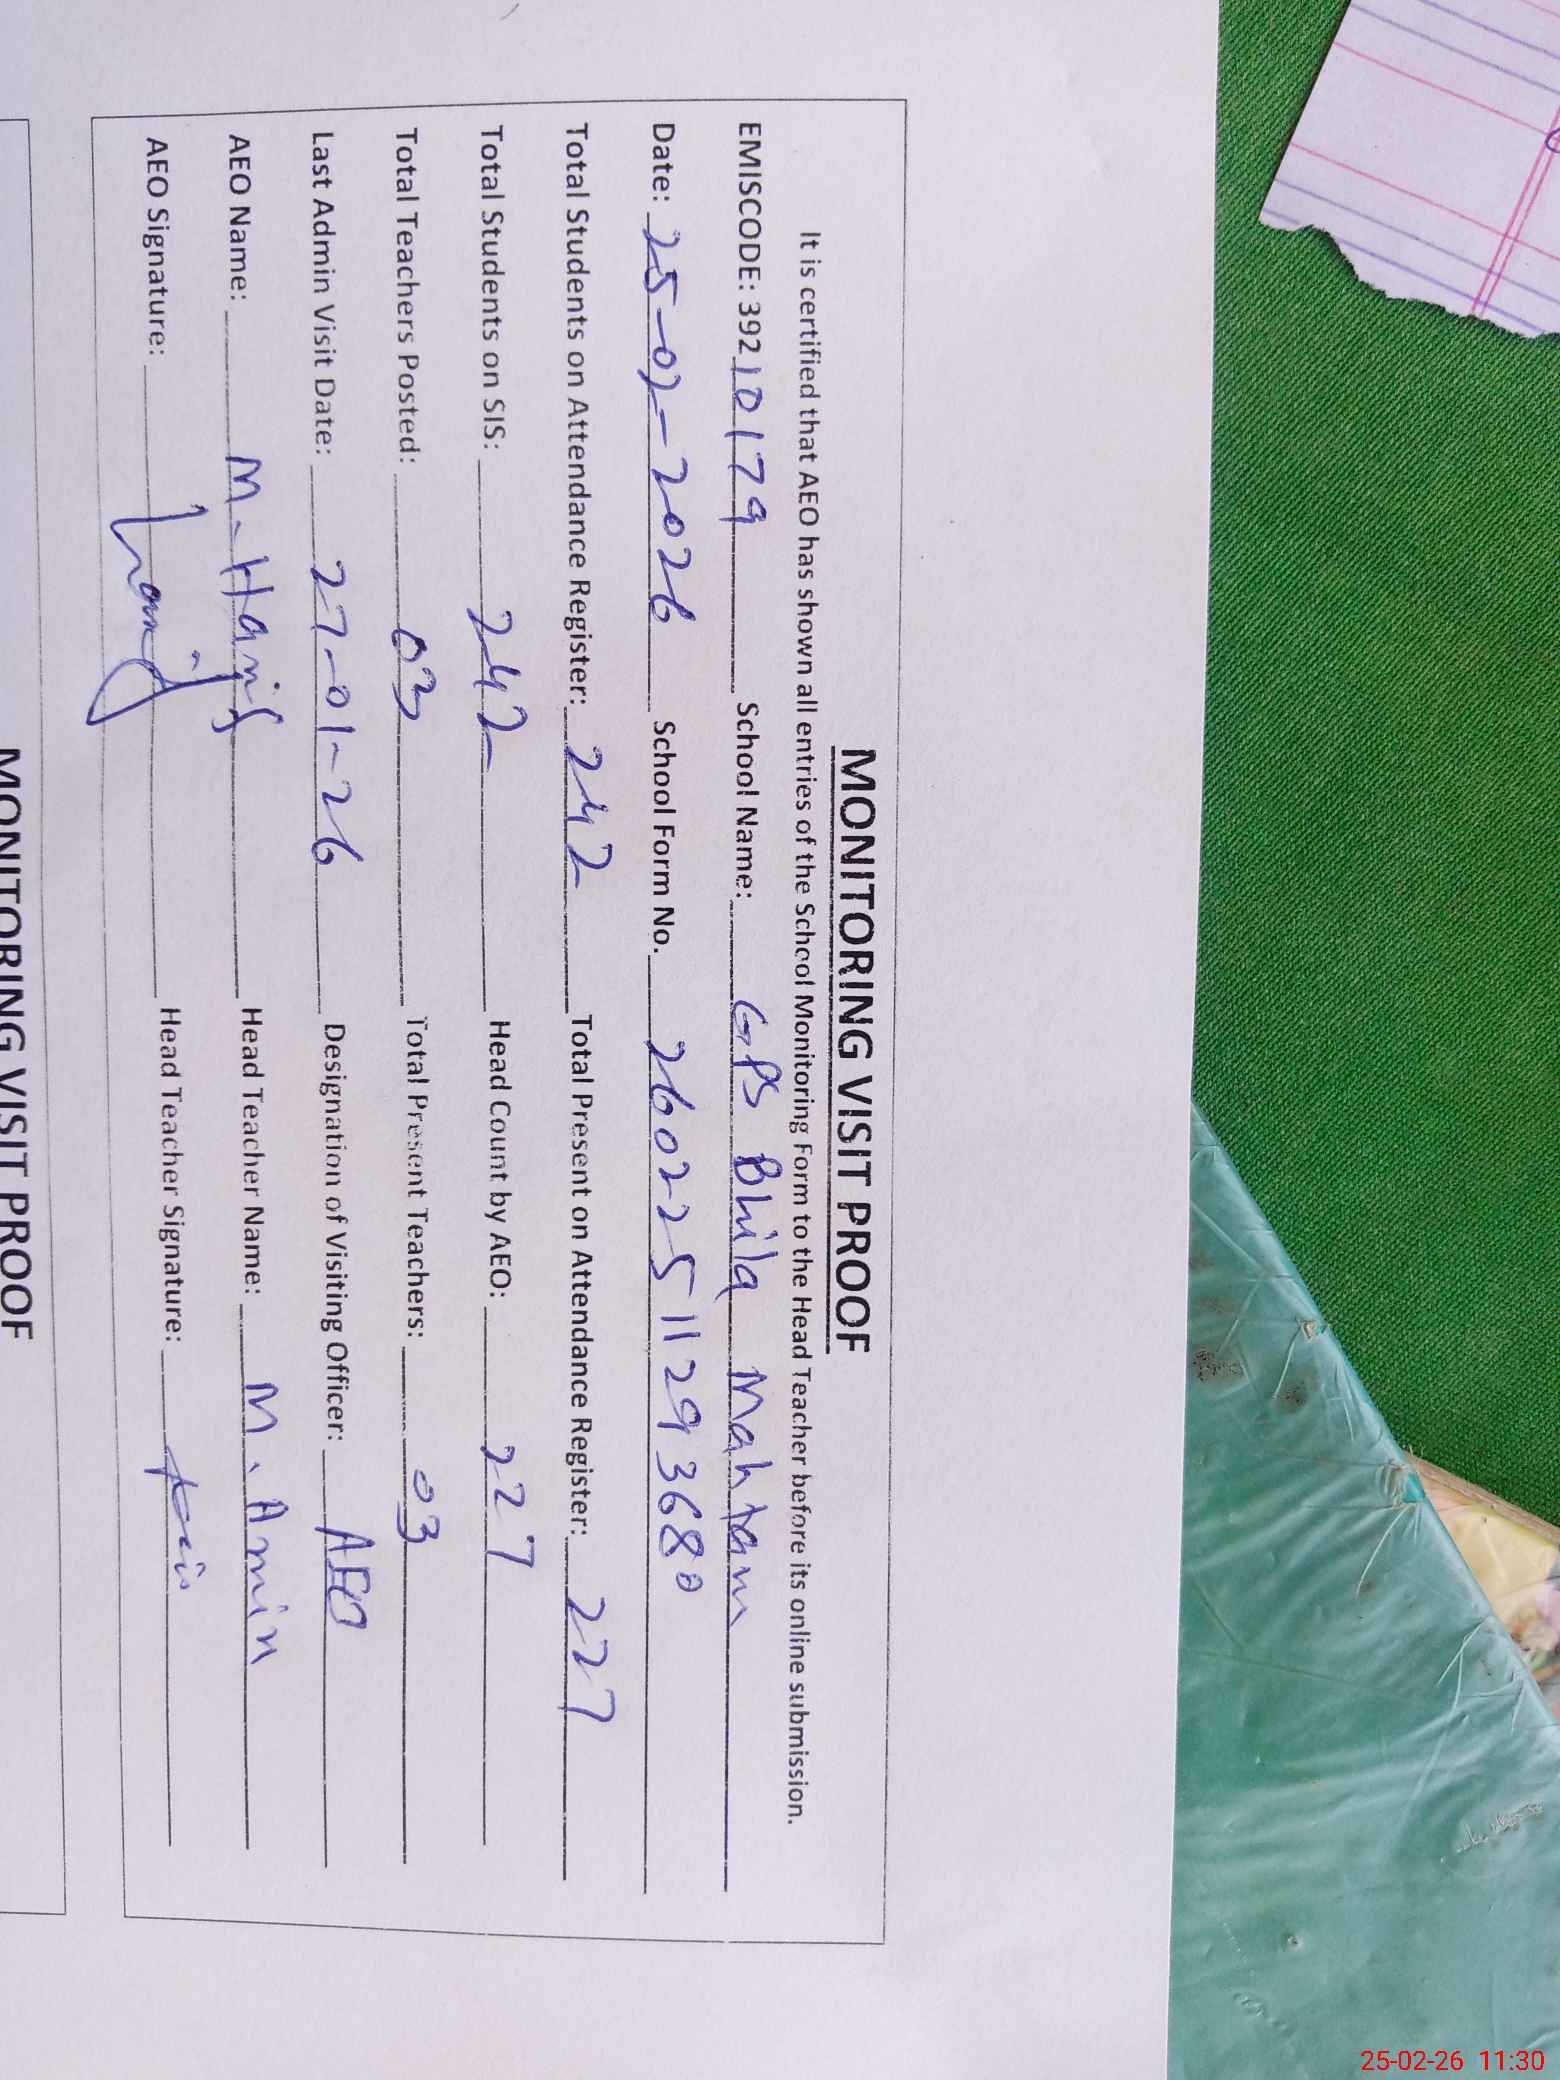 MONITORING VISIT PROOF
It is certified that AEO has shown all entries of the School Monitoring Form to the Head Teacher before its online submission.
EMISCODE: 39210179 School Name: GPS Bhila Mahtam
Date: 25-02-2026 School Form No. 26022511293680
Total Students on Attendance Register: 242 Total Present on Attendance Register: 227
Total Students on SIS: 242 Head Count by AEO: 227
Total Teachers Posted: 03 Total Present Teachers: 03
Last Admin Visit Date: 27-01-26 Designation of Visiting Officer: AEO
AEO Name: M. Hanif Head Teacher Name: M. Amin
AEO Signature: Head Teacher Signature:
MONITORING VISIT PROOF
25-02-26 11:30